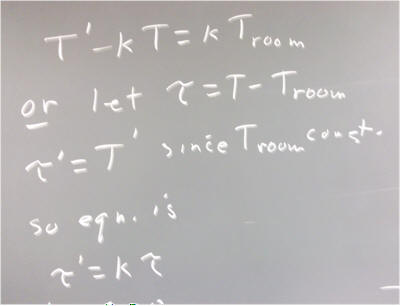 T' - k T = k T_room
or let τ = T - T_room
τ' = T' since T_room const.
so eqn. is
τ' = k τ